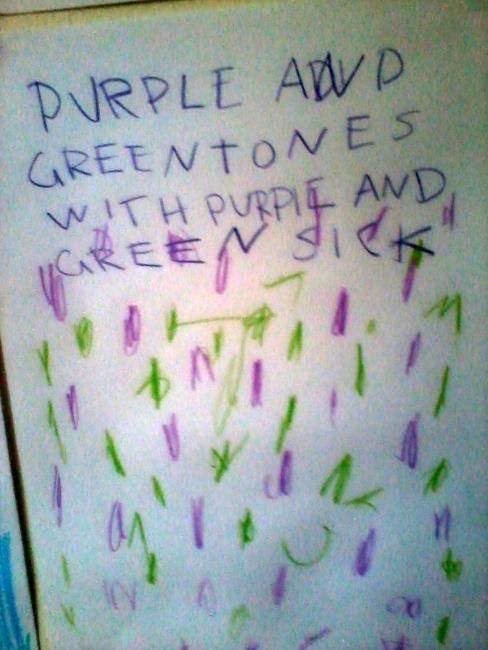 PURPLE AND
GREENTONES
WITH PURPLE AND
GREEN SICK